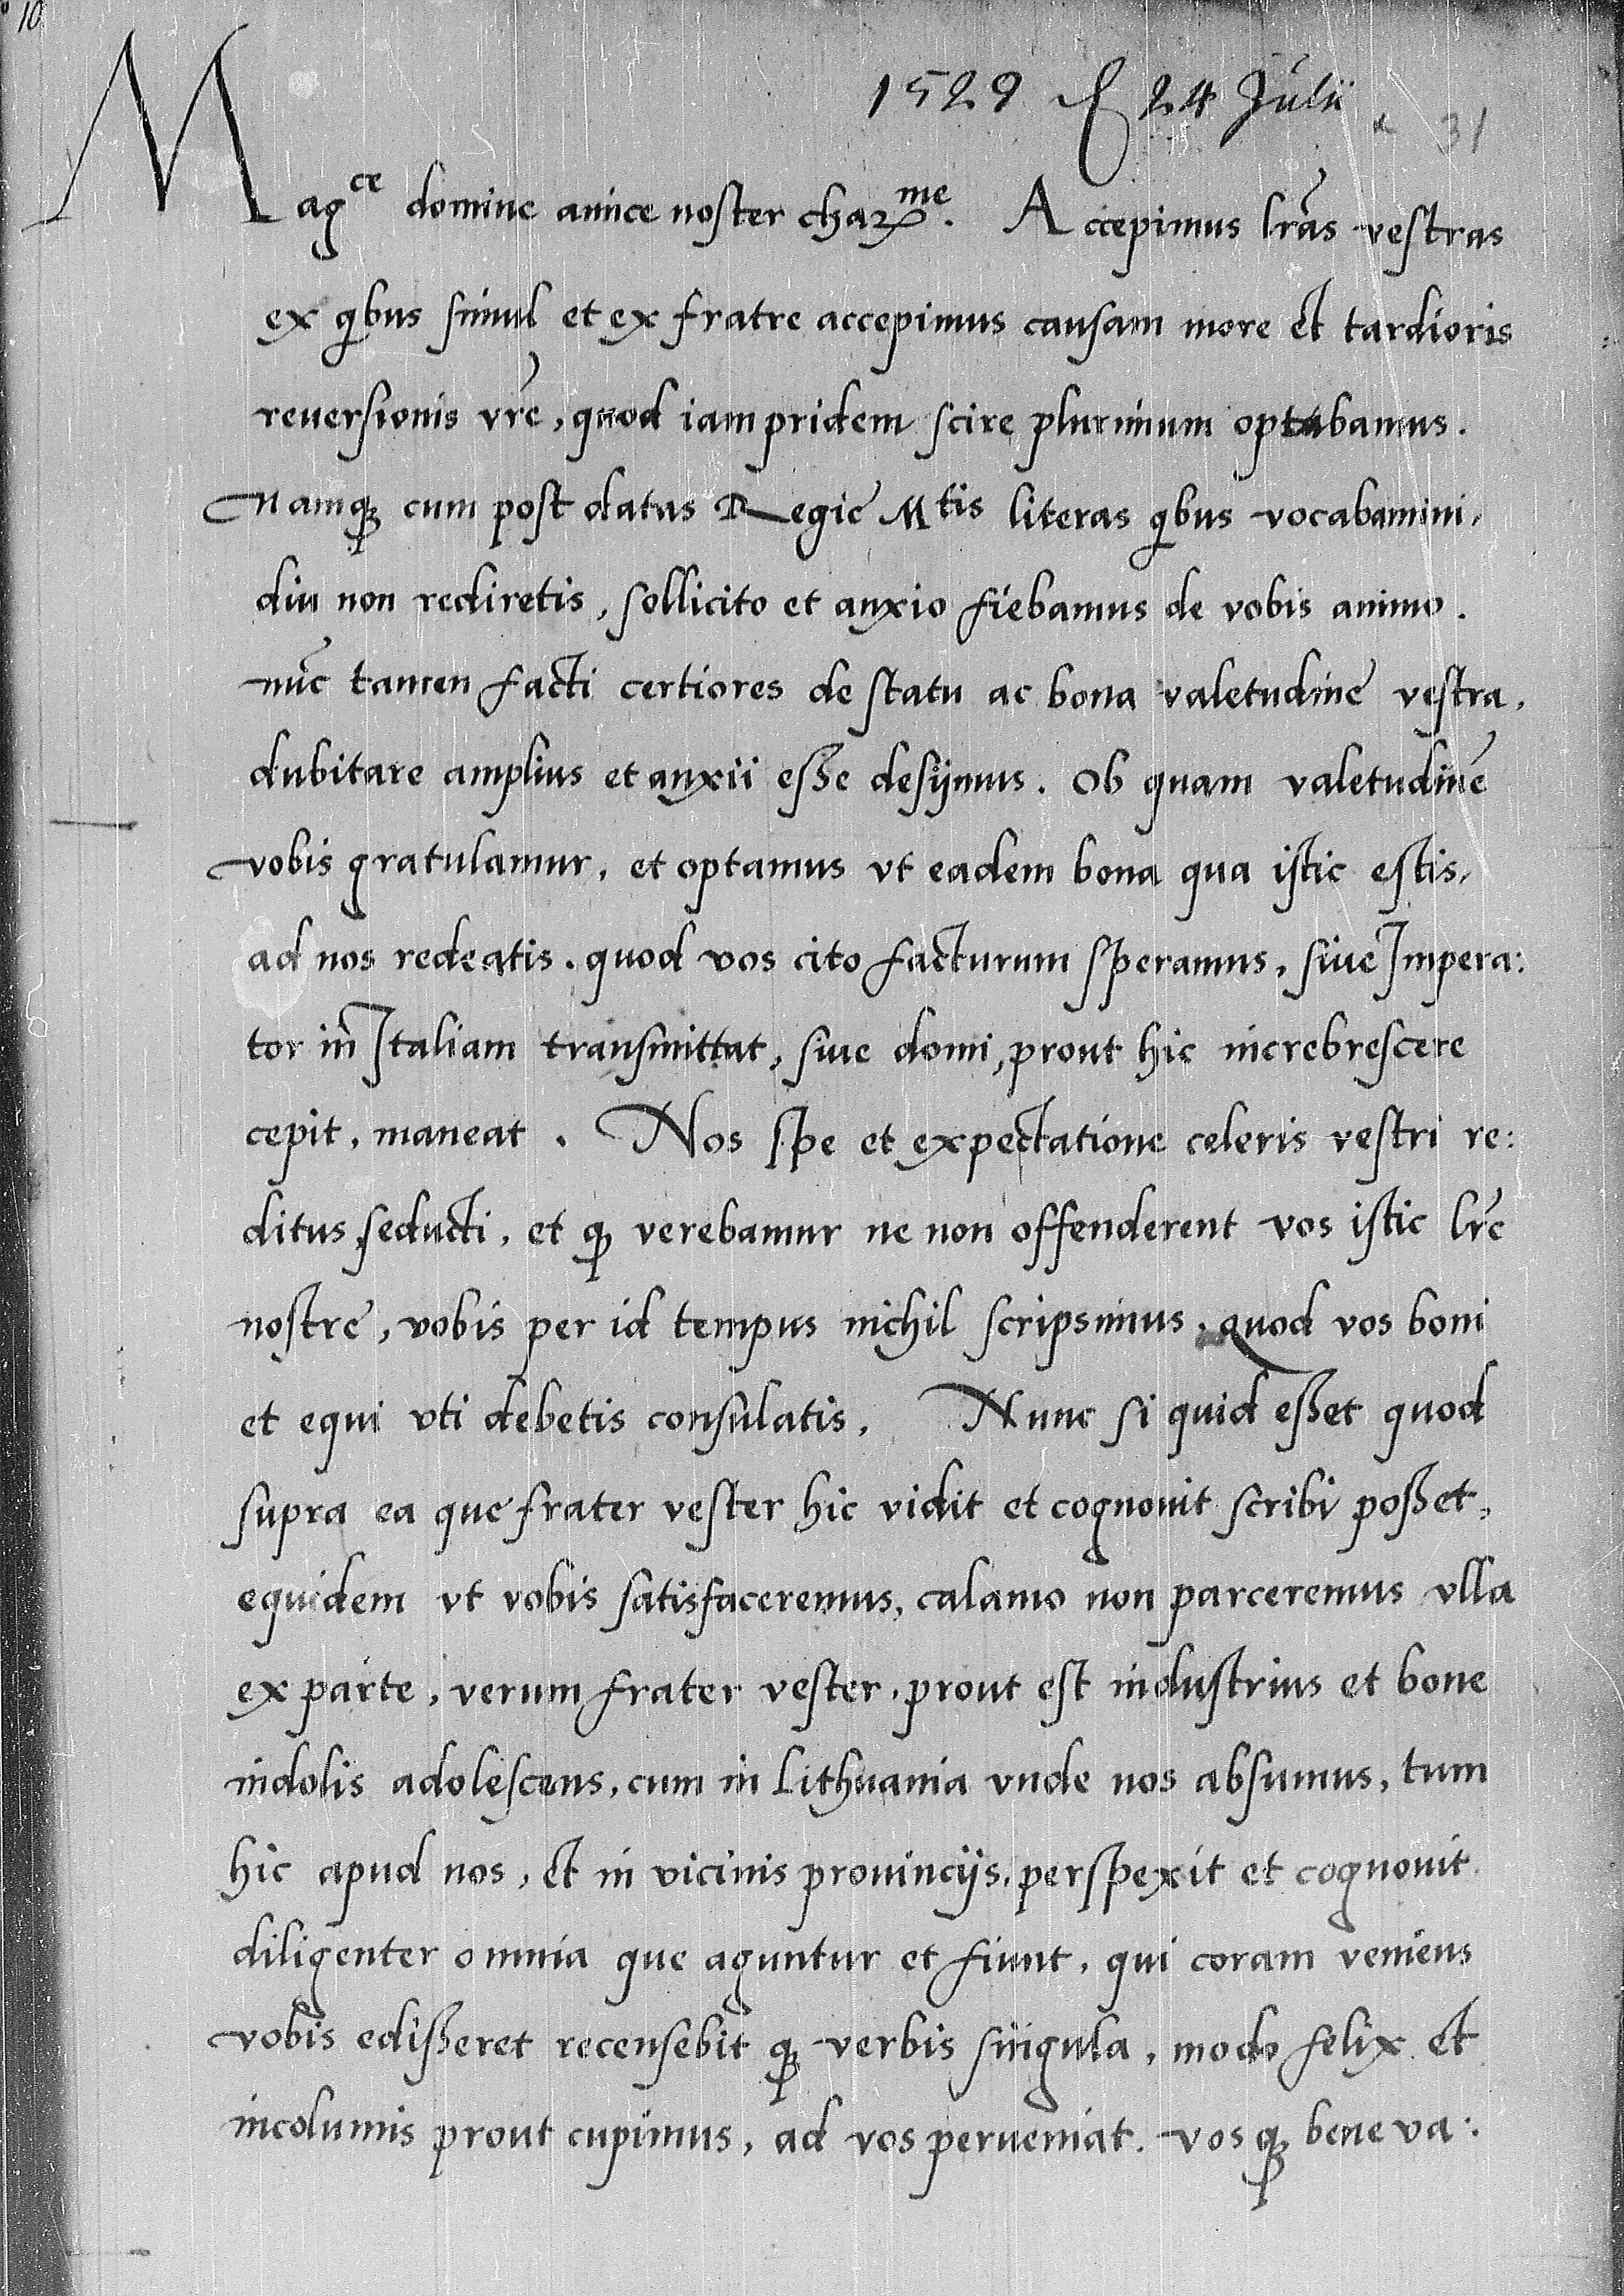 10
1529 24 Julii
31
Mag^ce domine amice noster char^me. Accepimus lr̃as vestras
ex qibus simul et ex fratre accepimus causam more et tardioris
reuersionis vrẽ, quod iam pridem scire plurimum optabamus.
Namq cum post datas Regie M^tis literas qibus vocabamini,
diu non rediretis, sollicito et anxio fiebamus de vobis animo.
nũc tamen facti certiores de statu ac bona valetudine vestra,
dubitare amplius et anxii esse desijmus. Ob quam valetudinẽ
vobis gratulamur, et optamus vt eadem bona qua istic estis,
ad nos redeatis. quod vos cito facturum speramus, siue Impera:
tor in Italiam transmittat, siue domi, prout hic increbrescere
cepit, maneat. Nos spe et expectatione celeris vestri re:
ditus seducti, et q verebamur ne non offenderent vos istic lrẽ
nostre, vobis per id tempus nichil scripsimus. quod vos boni
et equi vti debetis consulatis. Nunc si quid esset quod
supra ea que frater vester hic vidit et cognouit scribi posset,
equidem vt vobis satisfaceremus, calamo non parceremus vlla
ex parte, verum frater vester, prout est industrius et bone
indolis adolescens, cum in Lithuania vnde nos absumus, tum
hic apud nos, et in vicinis prouincijs, perspexit et cognouit
diligenter omnia que aguntur et fiunt, qui coram veniens
vobis edisseret recensebit q verbis singula, modo felix et
incolumis prout cupimus, ad vos perueniat. vos q bene va: